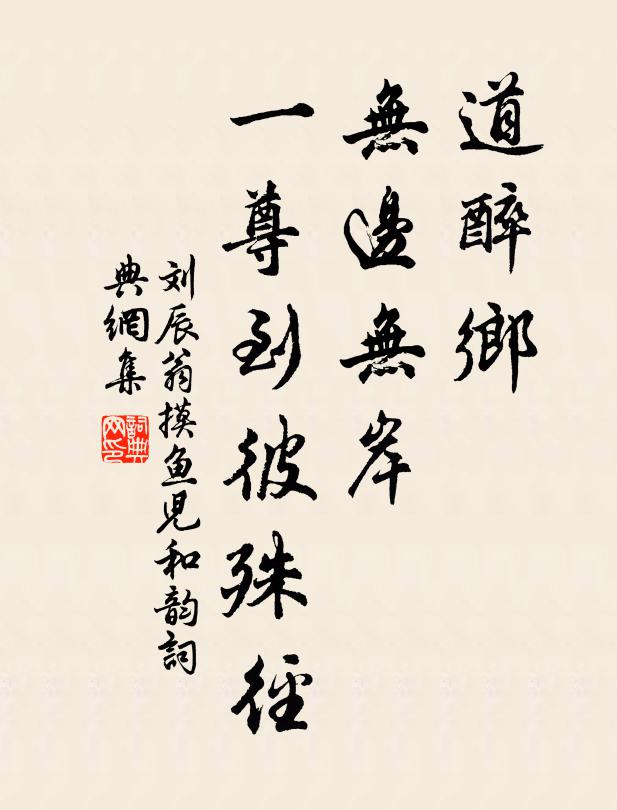 道醉鄉
無邊無岸
一尊到彼殊徑
刘辰翁摸鱼児和韵詞
典網集
詞典网印